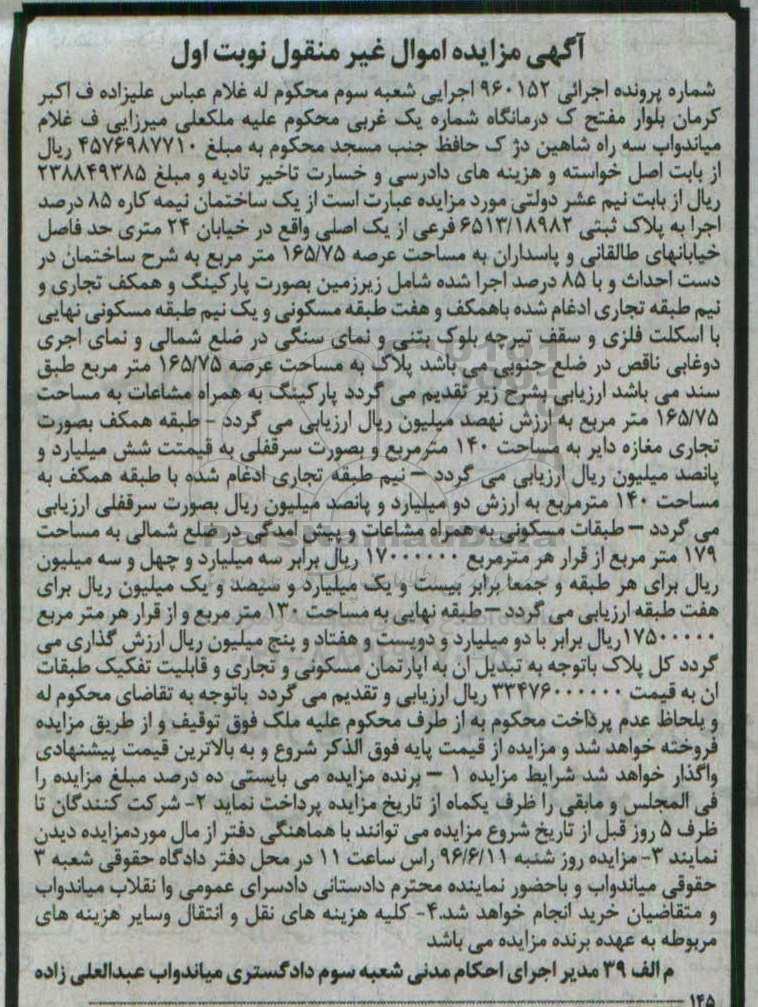 آگهی مزایده اموال غیر منقول نوبت اول
شماره پرونده اجرائی ۹۶۰۱۵۲ اجرایی شعبه سوم محکوم له غلام عباس علیزاده ف اکبر
کرمان بلوار مفتح ک درمانگاه شماره یک غربی محکوم علیه ملکعلی میرزایی ف غلام
میاندواب سه راه شاهین دژ ک حافظ جنب مسجد محکوم به مبلغ ۴۵۷۶۹۸۷۷۱۰ ریال
از بابت اصل خواسته و هزینه های دادرسی و خسارت تاخیر تادیه و مبلغ ۲۳۸۸۴۹۳۸۵
ریال از بابت نیم عشر دولتی مورد مزایده عبارت است از یک ساختمان نیمه کاره ۸۵ درصد
اجرا به پلاک ثبتی ۶۵۱۳/۱۸۹۸۲ فرعی از یک اصلی واقع در خیابان ۲۴ متری حد فاصل
خیابانهای طالقانی و پاسداران به مساحت عرصه ۱۶۵/۷۵ متر مربع به شرح ساختمان در
دست احداث و با ۸۵ درصد اجرا شده شامل زیرزمین بصورت پارکینگ و همکف تجاری و
نیم طبقه تجاری ادغام شده باهمکف و هفت طبقه مسکونی و یک نیم طبقه مسکونی نهایی
با اسکلت فلزی و سقف تیرچه بلوک بتنی و نمای سنگی در ضلع شمالی و نمای اجری
دوغابی ناقص در ضلع جنوبی می باشد پلاک به مساحت عرصه ۱۶۵/۷۵ متر مربع طبق
سند می باشد ارزیابی بشرح زیر تقدیم می گردد پارکینگ به همراه مشاعات به مساحت
۱۶۵/۷۵ متر مربع به ارزش نهصد میلیون ریال ارزیابی می گردد - طبقه همکف بصورت
تجاری مغازه دایر به مساحت ۱۴۰ مترمربع و بصورت سرقفلی به قیمتت شش میلیارد و
پانصد میلیون ریال ارزیابی می گردد – نیم طبقه تجاری ادغام شده با طبقه همکف به
مساحت ۱۴۰ مترمربع به ارزش دو میلیارد و پانصد میلیون ریال بصورت سرقفلی ارزیابی
می گردد – طبقات مسکونی به همراه مشاعات و پیش امدگی در ضلع شمالی به مساحت
۱۷۹ متر مربع از قرار هر مترمربع ۱۷۰۰۰۰۰۰ ریال برابر سه میلیارد و چهل و سه میلیون
ریال برای هر طبقه و جمعا برابر بیست و یک میلیارد و سیصد و یک میلیون ریال برای
هفت طبقه ارزیابی می گردد – طبقه نهایی به مساحت ۱۳۰ متر مربع و از قرار هر متر مربع
۱۷۵۰۰۰۰۰ ریال برابر با دو میلیارد و دویست و هفتاد و پنج میلیون ریال ارزش گذاری می
گردد کل پلاک باتوجه به تبدیل ان به اپارتمان مسکونی و تجاری و قابلیت تفکیک طبقات
ان به قیمت ۳۳۴۷۶۰۰۰۰۰۰ ریال ارزیابی و تقدیم می گردد باتوجه به تقاضای محکوم له
و بلحاظ عدم پرداخت محکوم به از طرف محکوم علیه ملک فوق توقیف و از طریق مزایده
فروخته خواهد شد و مزایده از قیمت پایه فوق الذکر شروع و به بالاترین قیمت پیشنهادی
واگذار خواهد شد شرایط مزایده ۱ – برنده مزایده می بایستی ده درصد مبلغ مزایده را
فی المجلس و مابقی را ظرف یکماه از تاریخ مزایده پرداخت نماید ۲- شرکت کنندگان تا
ظرف ۵ روز قبل از تاریخ شروع مزایده می توانند با هماهنگی دفتر از مال موردمزایده دیدن
نمایند ۳- مزایده روز شنبه ۹۶/۶/۱۱ راس ساعت ۱۱ در محل دفتر دادگاه حقوقی شعبه ۳
حقوقی میاندواب و باحضور نماینده محترم دادستانی دادسرای عمومی وا نقلاب میاندواب
و متقاضیان خرید انجام خواهد شد.۴- کلیه هزینه های نقل و انتقال وسایر هزینه های
مربوطه به عهده برنده مزایده می باشد
م الف ۳۹ مدیر اجرای احکام مدنی شعبه سوم دادگستری میاندواب عبدالعلی زاده
۱۴۵